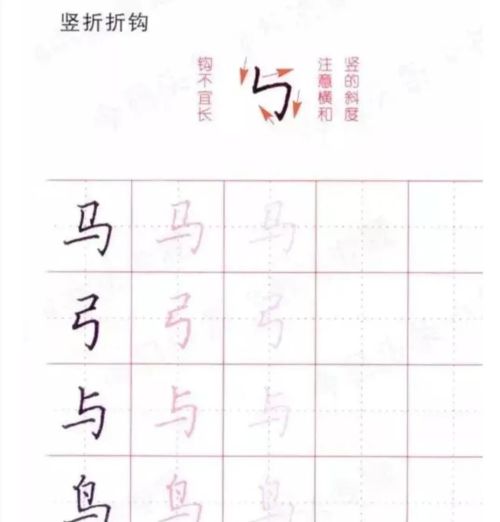 竖折折钩
钩不宜长
竖的斜度
注意横和
马 马 马
弓 弓 弓
与 与 与
鸟 鸟 鸟